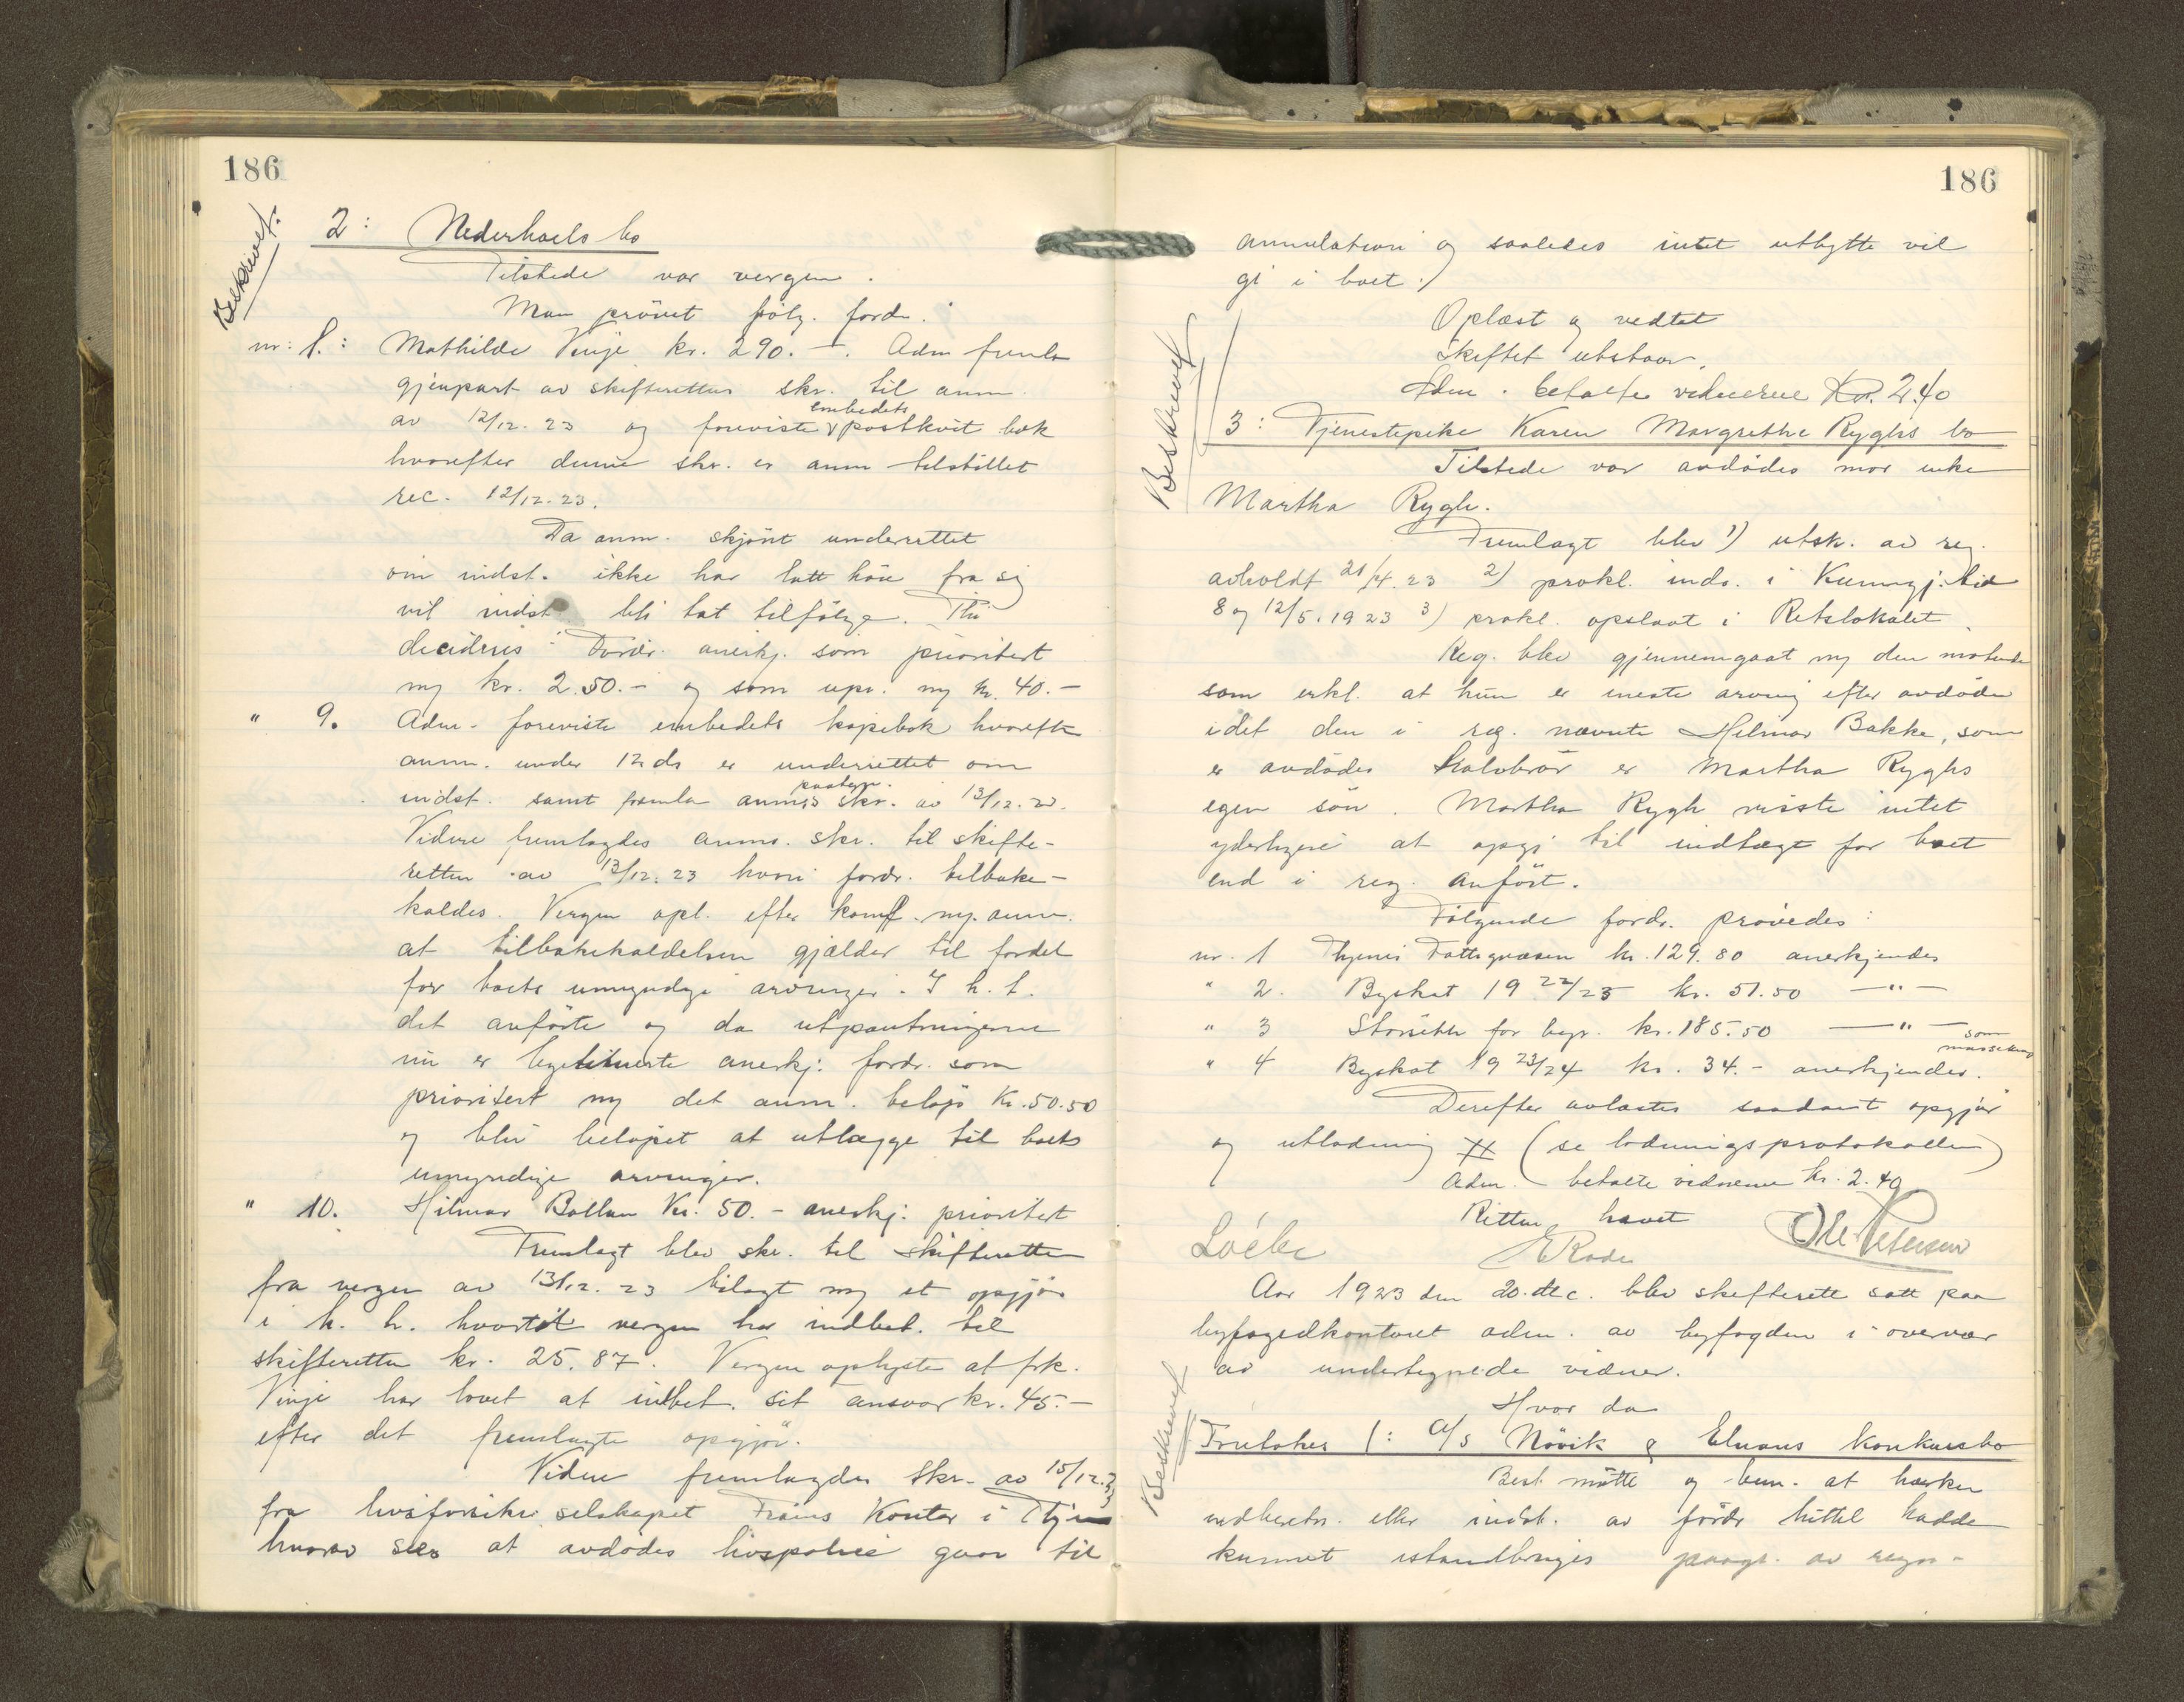 186
Beskrevet.
2: Nederhoels bo
Tilstede var vergen.
Man prövet følg. fordr.
nr: 8.: Mathilde Vinje kr. 290.-. Adm fremla
gjenpart av skifterettens skr. til anm.
av 12/12. 23 og foreviste embedets postkvit bok
hvorefter denne skr. er anm tilstillet
rec. 12/12. 23.
Da anm. skjönt underrettet
om indst. ikke har latt höre fra sig
vil indst. bli tat tilfölge. Thi
decideres: Fordr. anerkj. som prioritert
mg kr. 250.- og som upr. mg kr. 40.-
" 9. Adm. foreviste embedets kopibok hvorefter
anm. under 12 ds er underrettet om
indst. samt fremla anms paategn. skr. av 13/12. 23.
Videre fremlagdes anms. skr. til skifte-
retten av 13/12. 23 hvori fordr. tilbake-
kaldes. Vergen opl. efter konf. mg. anm.
at tilbakekaldelsen gjælder til fordel
for boets umyndige arvinger. I h. t.
det anförte og da utpantningerne
nu er legitimerte anerkj. fordr. som
prioritert mg det anm. belöp Kr. 50.50
og blir belöpet at utlægge til boets
umyndige arvinger.
" 10. Hilmar Ballan Kr. 50.- anerkj. prioritert
Fremlagt blev skr. til skifteretten
fra vergen av 13/12. 23 bilagt mg et opgjör
i h. h. hvortil vergen har indbet. til
skifteretten kr. 25.87. Vergen oplyste at frk.
Vinje har lovet at indbet. sit ansvar kr. 45.-
efter det fremlagte opgjör.
Videre fremlagdes skr. av 15/12. 23
fra livsforsikr. selskapet Frams Kontor i Thjem
hvorav sees at avdödes livspolice gaar til
186
annulation og saaledes intet utbytte vil
gi i boet :)
Oplæst og vedtat
Skiftet utstaar.
Adm. betalte vidnerne Kr. 2.40
Beskrevet
3: Tjenestepike Karen Margrethe Ryghs bo
Tilstede var avdödes mor enke
Martha Rygh.
Fremlagt blev 1) utsk. av reg.
avholdt 21/4. 23 2) prokl. inds. i Kunngj. tid
8 og 12/5. 1923 3) prokl. opslaat i Retslokalet.
Reg. blev gjennemgaat mg den mötende
som erkl. at hun er eneste arving efter avdöde
idet den i reg. nævnte Hilmar Bakke, som
er avdödes halvbror er Martha Ryghs
egen sön. Martha Rygh visste intet
yderligere at opgi til indtægt for boet
end i reg. anfört.
Fölgende fordr. prövedes:
nr. 1 Thjems Fattigvæsen kr. 129.80 anerkjendes
" 2. Byskat 1922/23 kr. 51.50 -"-
" 3 for begr. kr. 185.50 -"-
" 4 Byskat 1923/24 kr. 34.- anerkjendes. som massekrav
Derefter avlastes saadant opgjör
og utlodning (se lodningsprotokollen)
Adm. betalte vidnerne kr. 2.40
Retten hævet
Löebe
E Rode
Ole Petersen
Aar 1923 den 20. dec. blev skifterett satt paa
byfogedkontoret adm. av byfogden i overvær
av undertegnede vidner.
Hvor da
Beskrevet
Foretokes 1: A/S Növik & Elvans konkursbo
Best. mötte og bem. at hverken
indberetn. eller indst. av fordr hittil hadde
kunnet istandbringes paagr. av regn-